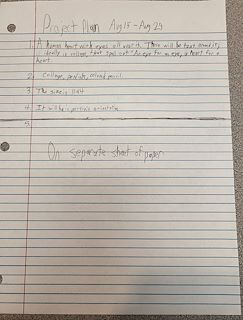 Project Plan Aug 15 - Aug 25
1. A human heart with eyes all over it. There will be text around it,
ideally in collage, that spell out "An eye for an eye, a heart for a
heart.
2. Collage, pen/ink, colored pencil.
3. The size is 11x14
4. It will be in portrait orientation
5.
On separate sheet of paper